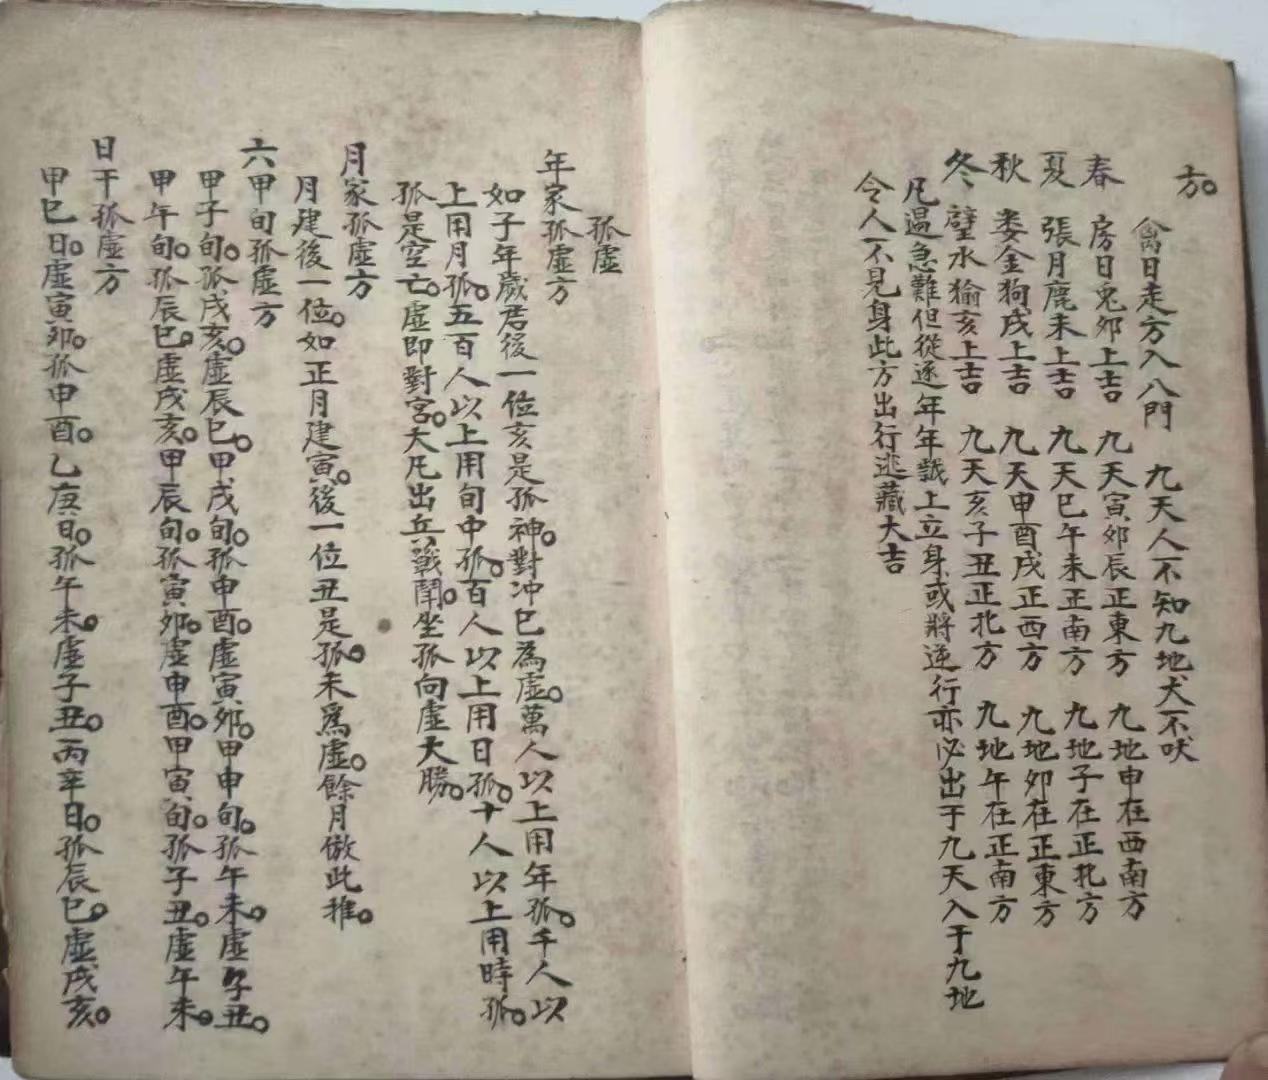 方。
禽日走方入八門　九天人不知九地犬不吠
春　房日兎卯上吉　九天寅卯辰正東方　九地申在西南方
夏　張月鹿未上吉　九天巳午未正南方　九地子在正北方
秋　婁金狗戌上吉　九天申酉戌正西方　九地卯在正東方
冬　壁水㺄亥上吉　九天亥子丑正北方　九地午在正南方
凡過急難但從逐年年 上立身或將逆行亦必出于九天入于九地
令人不見身此方出行逃藏大吉
孤虛
年家孤虛方
如子年歲君後一位亥是孤神。對冲巳為虛。萬人以上用年孤。千人以
上用月孤。五百人以上用旬中孤。百人以上用日孤。十人以上用時孤。
孤是空亡。虛即對宮。大凡出兵戰鬪。坐孤向虛大勝。
月家孤虛方
月建後一位。如正月建寅。後一位丑是孤。未爲虛。餘月倣此推。
六甲旬孤虛方
甲子旬。孤戌亥。虛辰巳。甲戌旬。孤申酉。虛寅卯。甲申旬。孤午未。虛子丑。
甲午旬。孤辰巳。虛戌亥。甲辰旬。孤寅卯。虛申酉。甲寅旬。孤子丑。虛午未。
日干孤虛方
甲巳日。虛寅卯。孤申酉。乙庚日。孤午未。虛子丑。丙辛日。孤辰巳。虛戌亥。